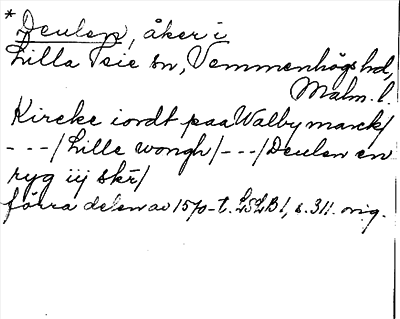 * Deulen, åker i
Lilla Beie sn, Vemmenhögs hd,
Malm. l.
Kircke iordt paa Walby marck/
---/Lille wongh/---/Deulen en
ryg iij skr/
förra delen av 1570-t. LSLB1, s. 311. orig.